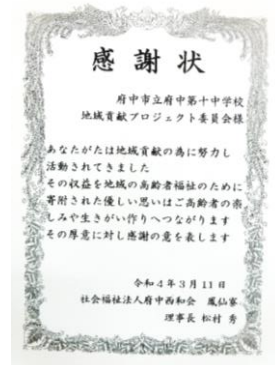 感謝状
府中市立府中第十中学校
地域貢献プロジェクト委員会様
あなたがたは地域貢献の為に努力し
活動されてきました
その収益を地域の高齢者福祉のために
寄附された優しい思いはご高齢者の楽
しみや生きがい作りへつながります
その厚意に対し感謝の意を表します
令和4年3月11日
社会福祉法人府中西和会 鳳仙寮
理事長 松村 秀